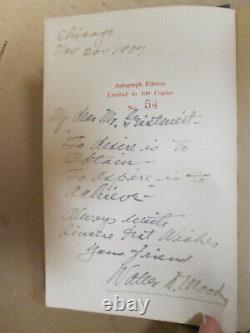 Chicago
Nov 20-1907
Autograph Edition
Limited to 100 Copies
No 54
My dear Mr.
"To desire is to
obtain—
To aspire is to
achieve—"
Always with
sincere best wishes
Your friend
Walter D. Moody
thumbtok.com